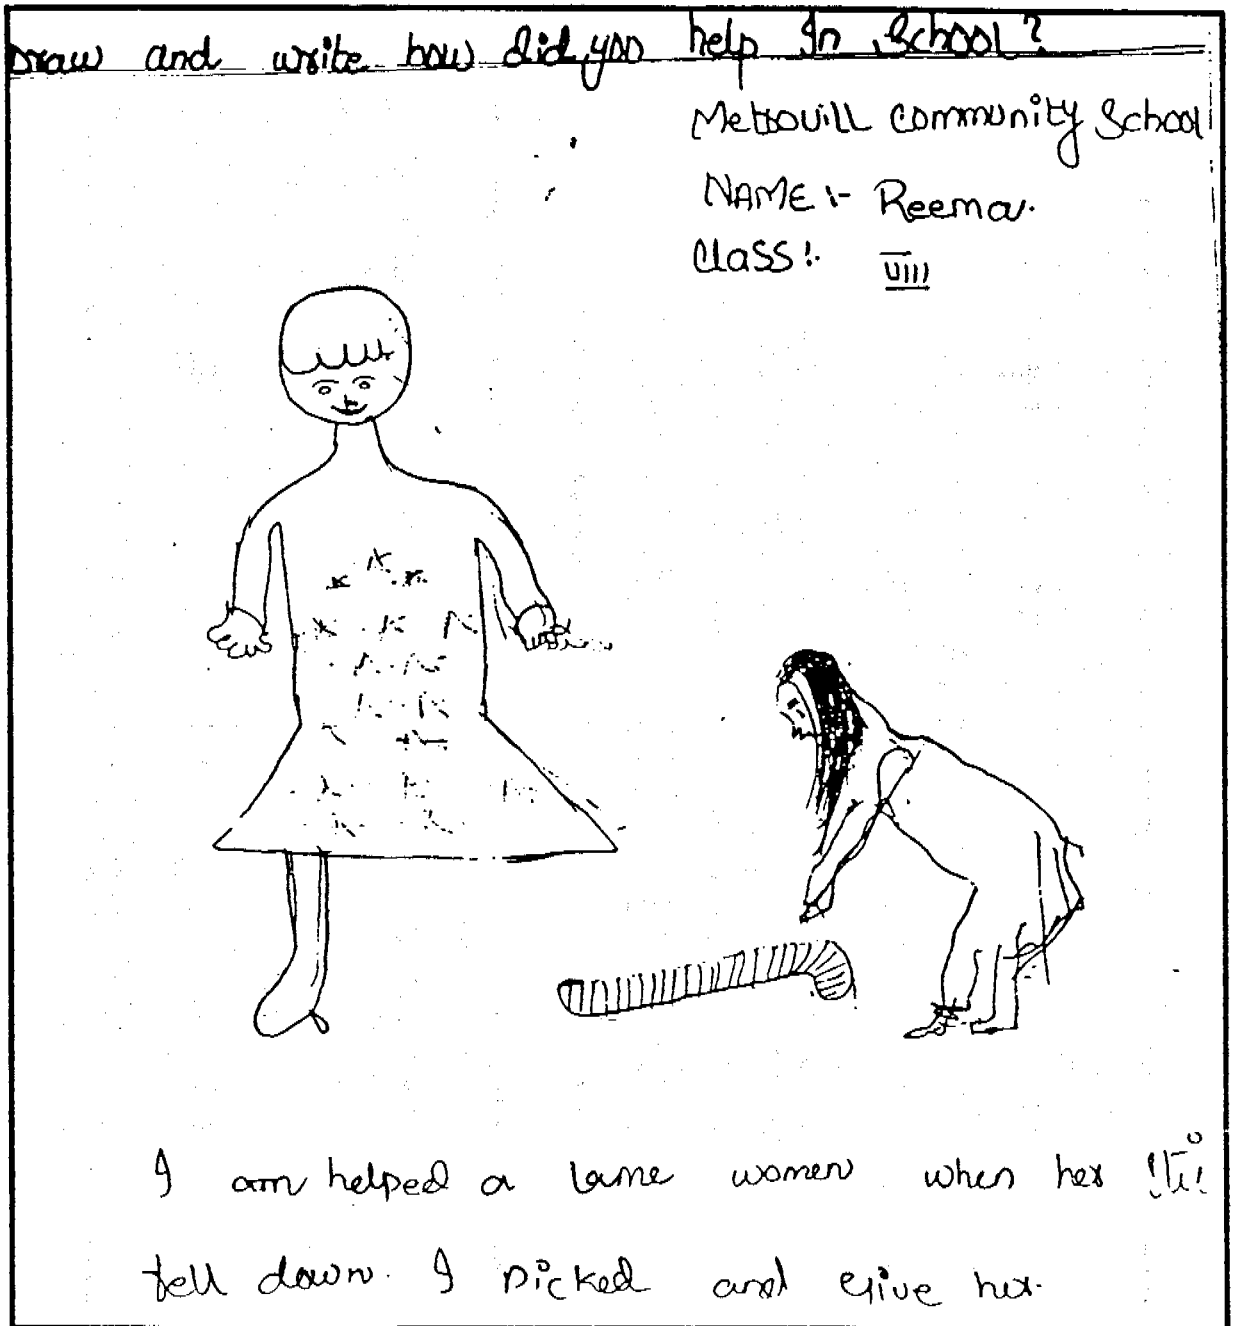 Draw and write how did you help In School?
Mettovill Community School
NAME :- Reema.
Class :- VIII
I am helped a lame women when her
fell down. I Picked and Give her.